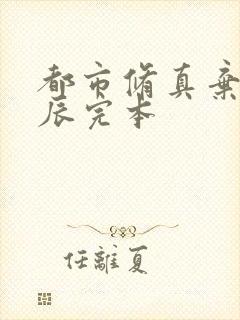 都市脩真棄
辰完本
任離夏